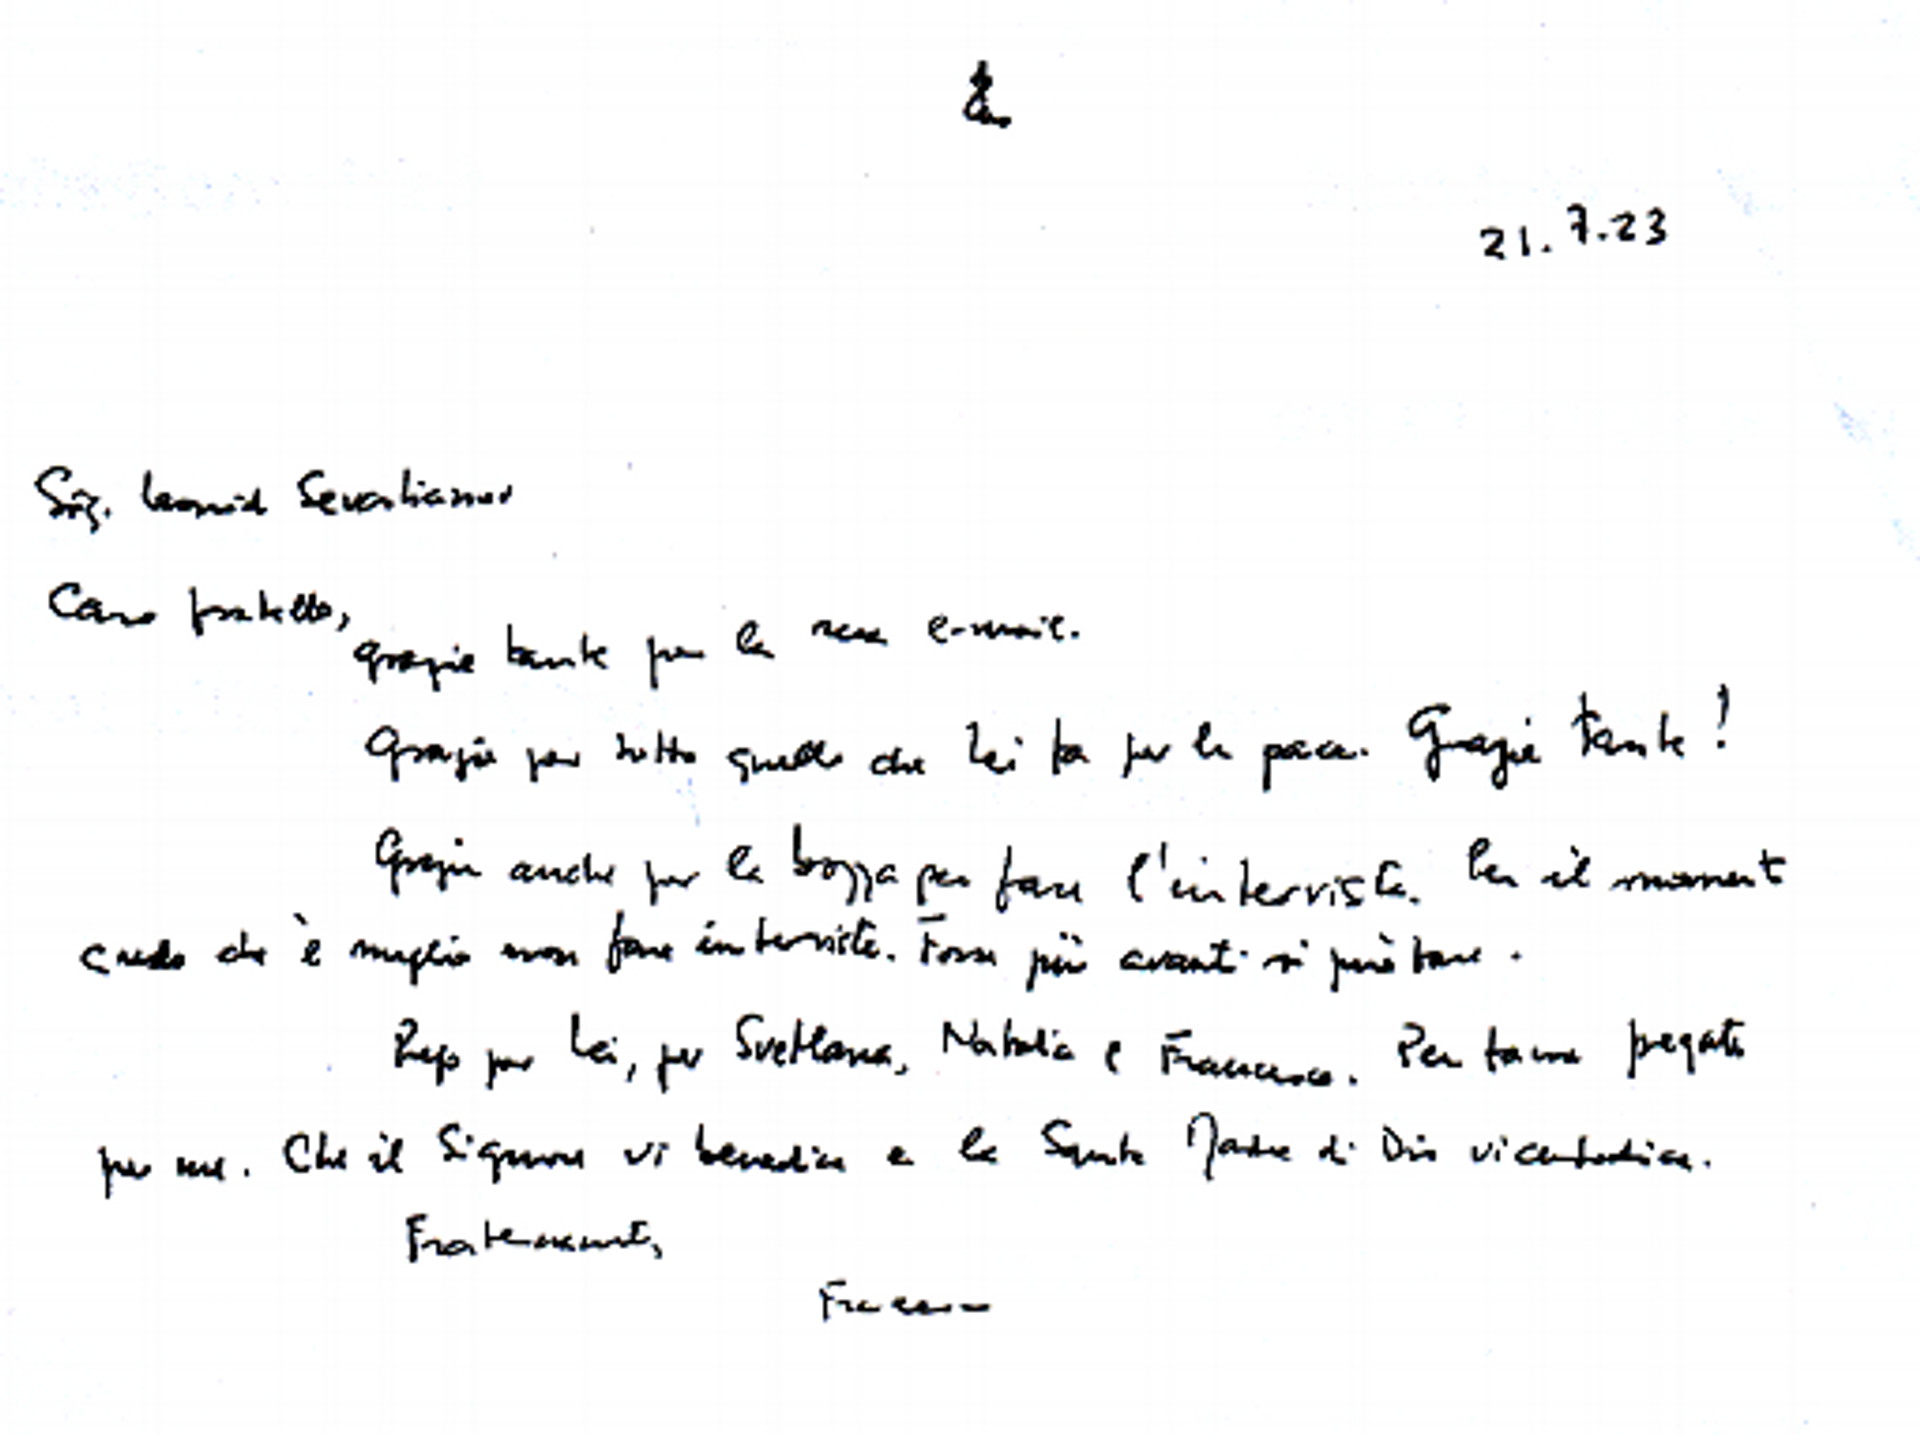 21.7.23
Sig. Leonid Sevastianov
Caro fratello,
grazie tante per la sua e-mail.
Grazie per tutto quello che Lei fa per la pace. Grazie tante!
Grazie anche per la bozza per fare l'intervista. Per il momento
credo che è meglio non fare interviste. Forse più avanti si può fare.
Prego per Lei, per Svetlana, Natalia e Francesco. Per favore pregate
per me. Che il Signore vi benedica e la Santa Madre di Dio vi custodisca.
Fraternamente,
Francesco